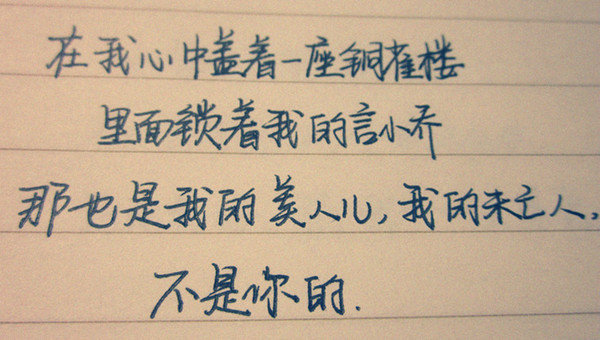 在我心中盖着一座铜雀楼
里面锁着我的言小乔
那也是我的美人儿,我的未亡人,
不是你的.